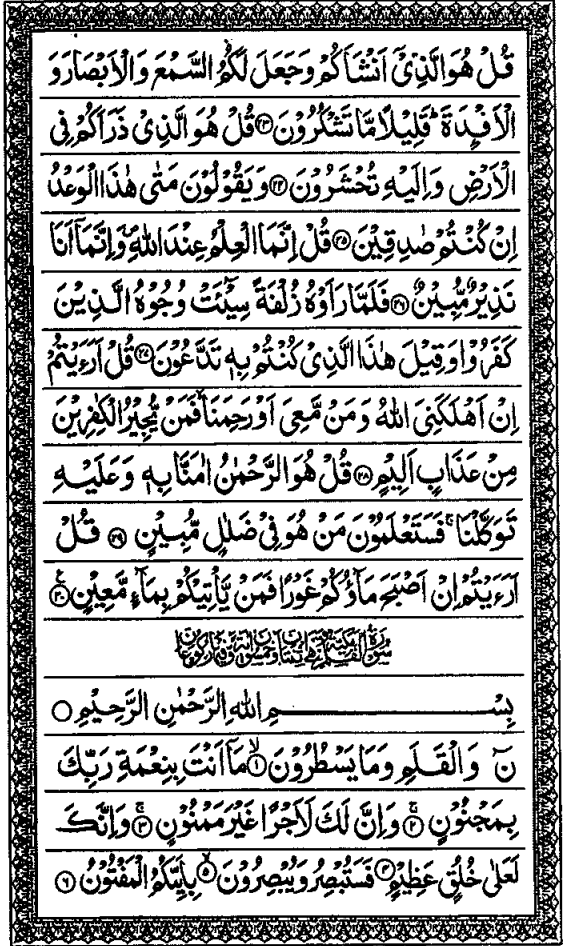 قُلْ هُوَ الَّذِیْۤ اَنْشَاَكُمْ وَجَعَلَ لَكُمُ السَّمْعَ وَالْاَبْصَارَ وَ
الْاَفْـِٕدَةَ ؕ قَلِیْلًا مَّا تَشْكُرُوْنَ ﴿۲۳﴾ قُلْ هُوَ الَّذِیْ ذَرَاَكُمْ فِی
الْاَرْضِ وَاِلَیْهِ تُحْشَرُوْنَ ﴿۲۴﴾ وَیَقُوْلُوْنَ مَتٰی هٰذَا الْوَعْدُ
اِنْ كُنْتُمْ صٰدِقِیْنَ ﴿۲۵﴾ قُلْ اِنَّمَا الْعِلْمُ عِنْدَ اللّٰهِ ۪ وَاِنَّمَاۤ اَنَا
نَذِیْرٌ مُّبِیْنٌ ﴿۲۶﴾ فَلَمَّا رَاَوْهُ زُلْفَةً سِیْٓـَٔتْ وُجُوْهُ الَّذِیْنَ
كَفَرُوْا وَقِیْلَ هٰذَا الَّذِیْ كُنْتُمْ بِهٖ تَدَّعُوْنَ ﴿۲۷﴾ قُلْ اَرَءَیْتُمْ
اِنْ اَهْلَكَنِیَ اللّٰهُ وَمَنْ مَّعِیَ اَوْ رَحِمَنَا ۙ فَمَنْ یُّجِیْرُ الْكٰفِرِیْنَ
مِنْ عَذَابٍ اَلِیْمٍ ﴿۲۸﴾ قُلْ هُوَ الرَّحْمٰنُ اٰمَنَّا بِهٖ وَعَلَیْهِ
تَوَكَّلْنَا ۚ فَسَتَعْلَمُوْنَ مَنْ هُوَ فِیْ ضَلٰلٍ مُّبِیْنٍ ﴿۲۹﴾ قُلْ
اَرَءَیْتُمْ اِنْ اَصْبَحَ مَآؤُكُمْ غَوْرًا فَمَنْ یَّاْتِیْكُمْ بِمَآءٍ مَّعِیْنٍ ﴿۳۰﴾ ع
بِسْمِ اللّٰهِ الرَّحْمٰنِ الرَّحِیْمِ ○
نٓ وَالْقَلَمِ وَمَا یَسْطُرُوْنَ ۙ﴿۱﴾ مَاۤ اَنْتَ بِنِعْمَةِ رَبِّكَ
بِمَجْنُوْنٍ ۚ﴿۲﴾ وَاِنَّ لَكَ لَاَجْرًا غَیْرَ مَمْنُوْنٍ ۚ﴿۳﴾ وَاِنَّكَ
لَعَلٰی خُلُقٍ عَظِیْمٍ ﴿۴﴾ فَسَتُبْصِرُ وَیُبْصِرُوْنَ ۙ﴿۵﴾ بِاَىیِّكُمُ الْمَفْتُوْنُ ﴿۶﴾